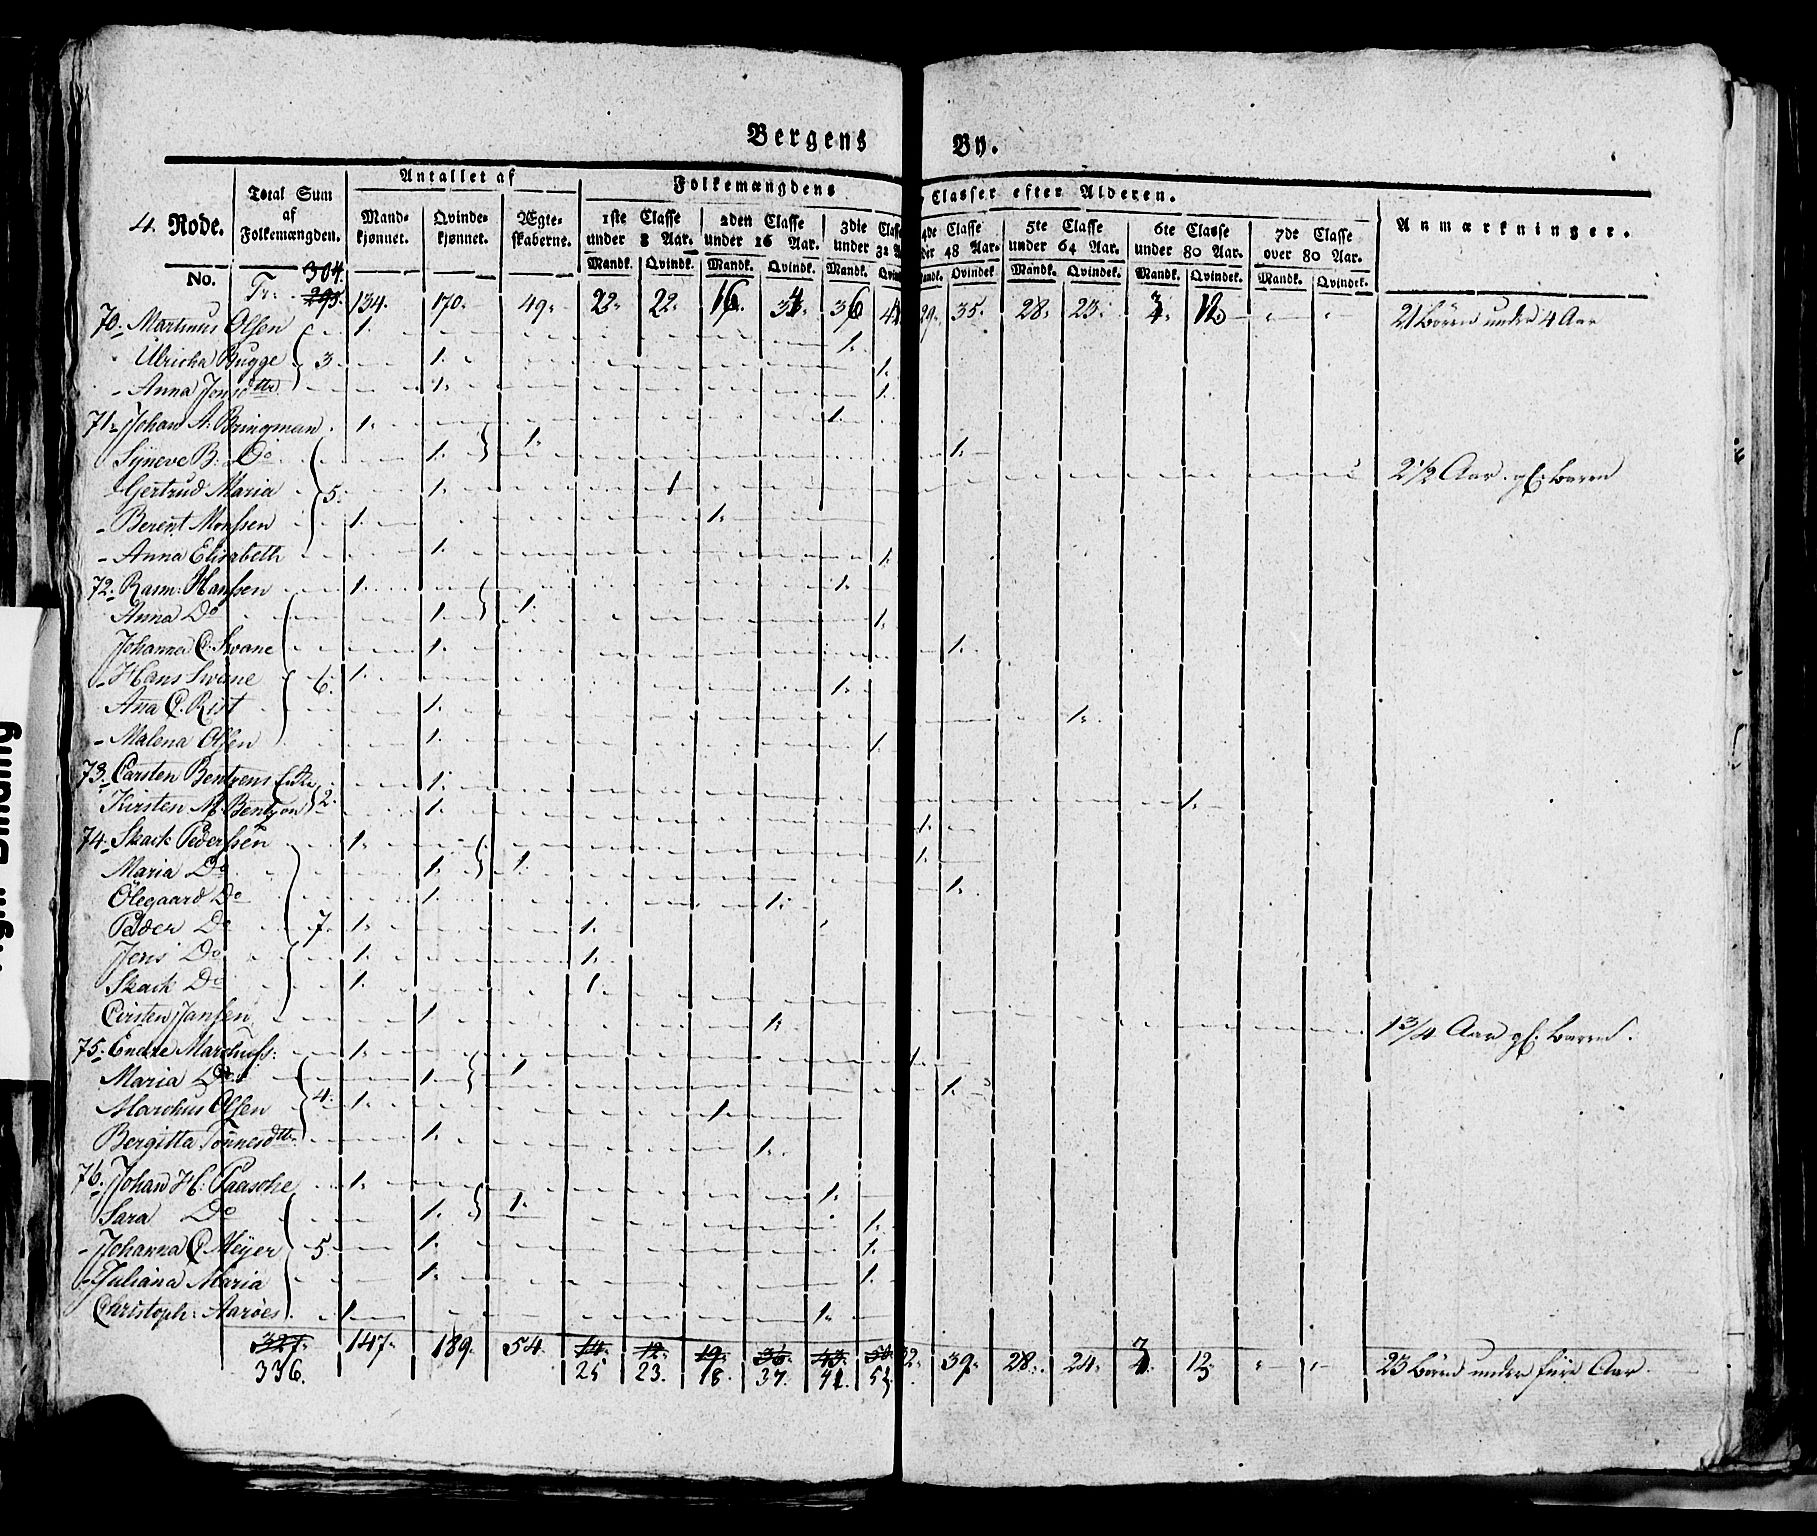 Bergens By.
4. Rode. Total Sum af Folkemængden. Antallet af Folkemængdens Classer efter Alderen. Anmærkninger.
Mandkjønnet. Qvindekjønnet. Ægteskaberne. 1ste Classe under 8 Aar. 2den Classe under 16 Aar. 3die Classe under 32 4de Classe 48 Aar. 5te Classe under 64 Aar. 6te Classe under 80 Aar. 7de Classe over 80 Aar.
Mandk. Qvindk. Mandk. Qvindk. Mandk. Qvindek. Mandk. Qvindek. Mandk. Qvindek. Mandk. Qvindek.
No. Tr: 304. 293. 134. 170. 49. 22. 22. 16. 34 36 29. 35. 28. 23. 12. 21 Börn under 4 Aar
70. Martinus Olsen 1. 1.
Ulricha Bugge 3. 1. 1.
Anna Jensdttr 1. 1.
71. Johan A: Bringman 1. 1.
Syneve B: Do 1. 1. 1.
Gertrud Maria 5. 1. 1 2 1/2 Aar. gl: Baren
Berent Monssen 1. 1.
Anna Elisabeth 1. 1.
72. Rasm: Hanssen 1. 1.
Anna Do 1. 1. 1.
Johanna C. Svane 1. 1.
Hans Svane 6. 1. 1.
Ana C. Rist 1. 1.
Malena Olsen 1. 1.
73. Carsten Bentzens Enke 1.
Kirsten M. Bentzon 2. 1. 1.
74. Skack Pedersen 1. 1.
Maria Do 1. 1. 1.
Olegaard Do 1. 1. 1.
Peder Do 7. 1. 1.
Jens Do 1. 1.
Skack Do 1. 1.
Cirsten Jansen 1. 1. 1 3/4 Aar gl. Baren.
75. Endre Marchuss: 1. 1.
Maria Do 1. 1. 1.
Marchus Olsen 4. 1. 1.
Bergitta Tönnesdttr 1. 1.
76. Johan H: Paasche 1. 1.
Sara Do 1. 1. 1.
Johanna C. Meyer 5. 1. 1.
Juliana Maria 1. 1.
Christoph: Aaröes 1. 1.
327. 147. 189. 54. 14. 12. 19. 36. 43. 39. 28. 24. 12. 23 Börn under fire Aar
336. 25 23. 18. 37.